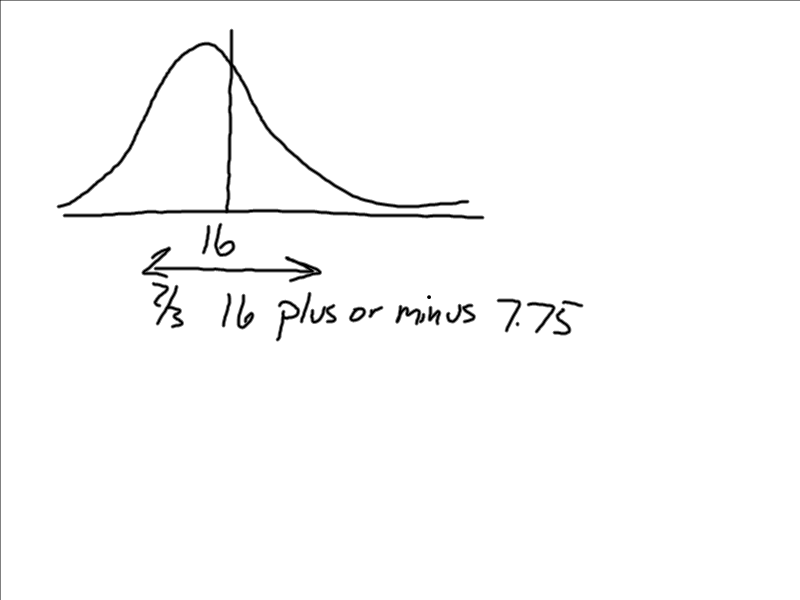 16
2/3 16 plus or minus 7.75